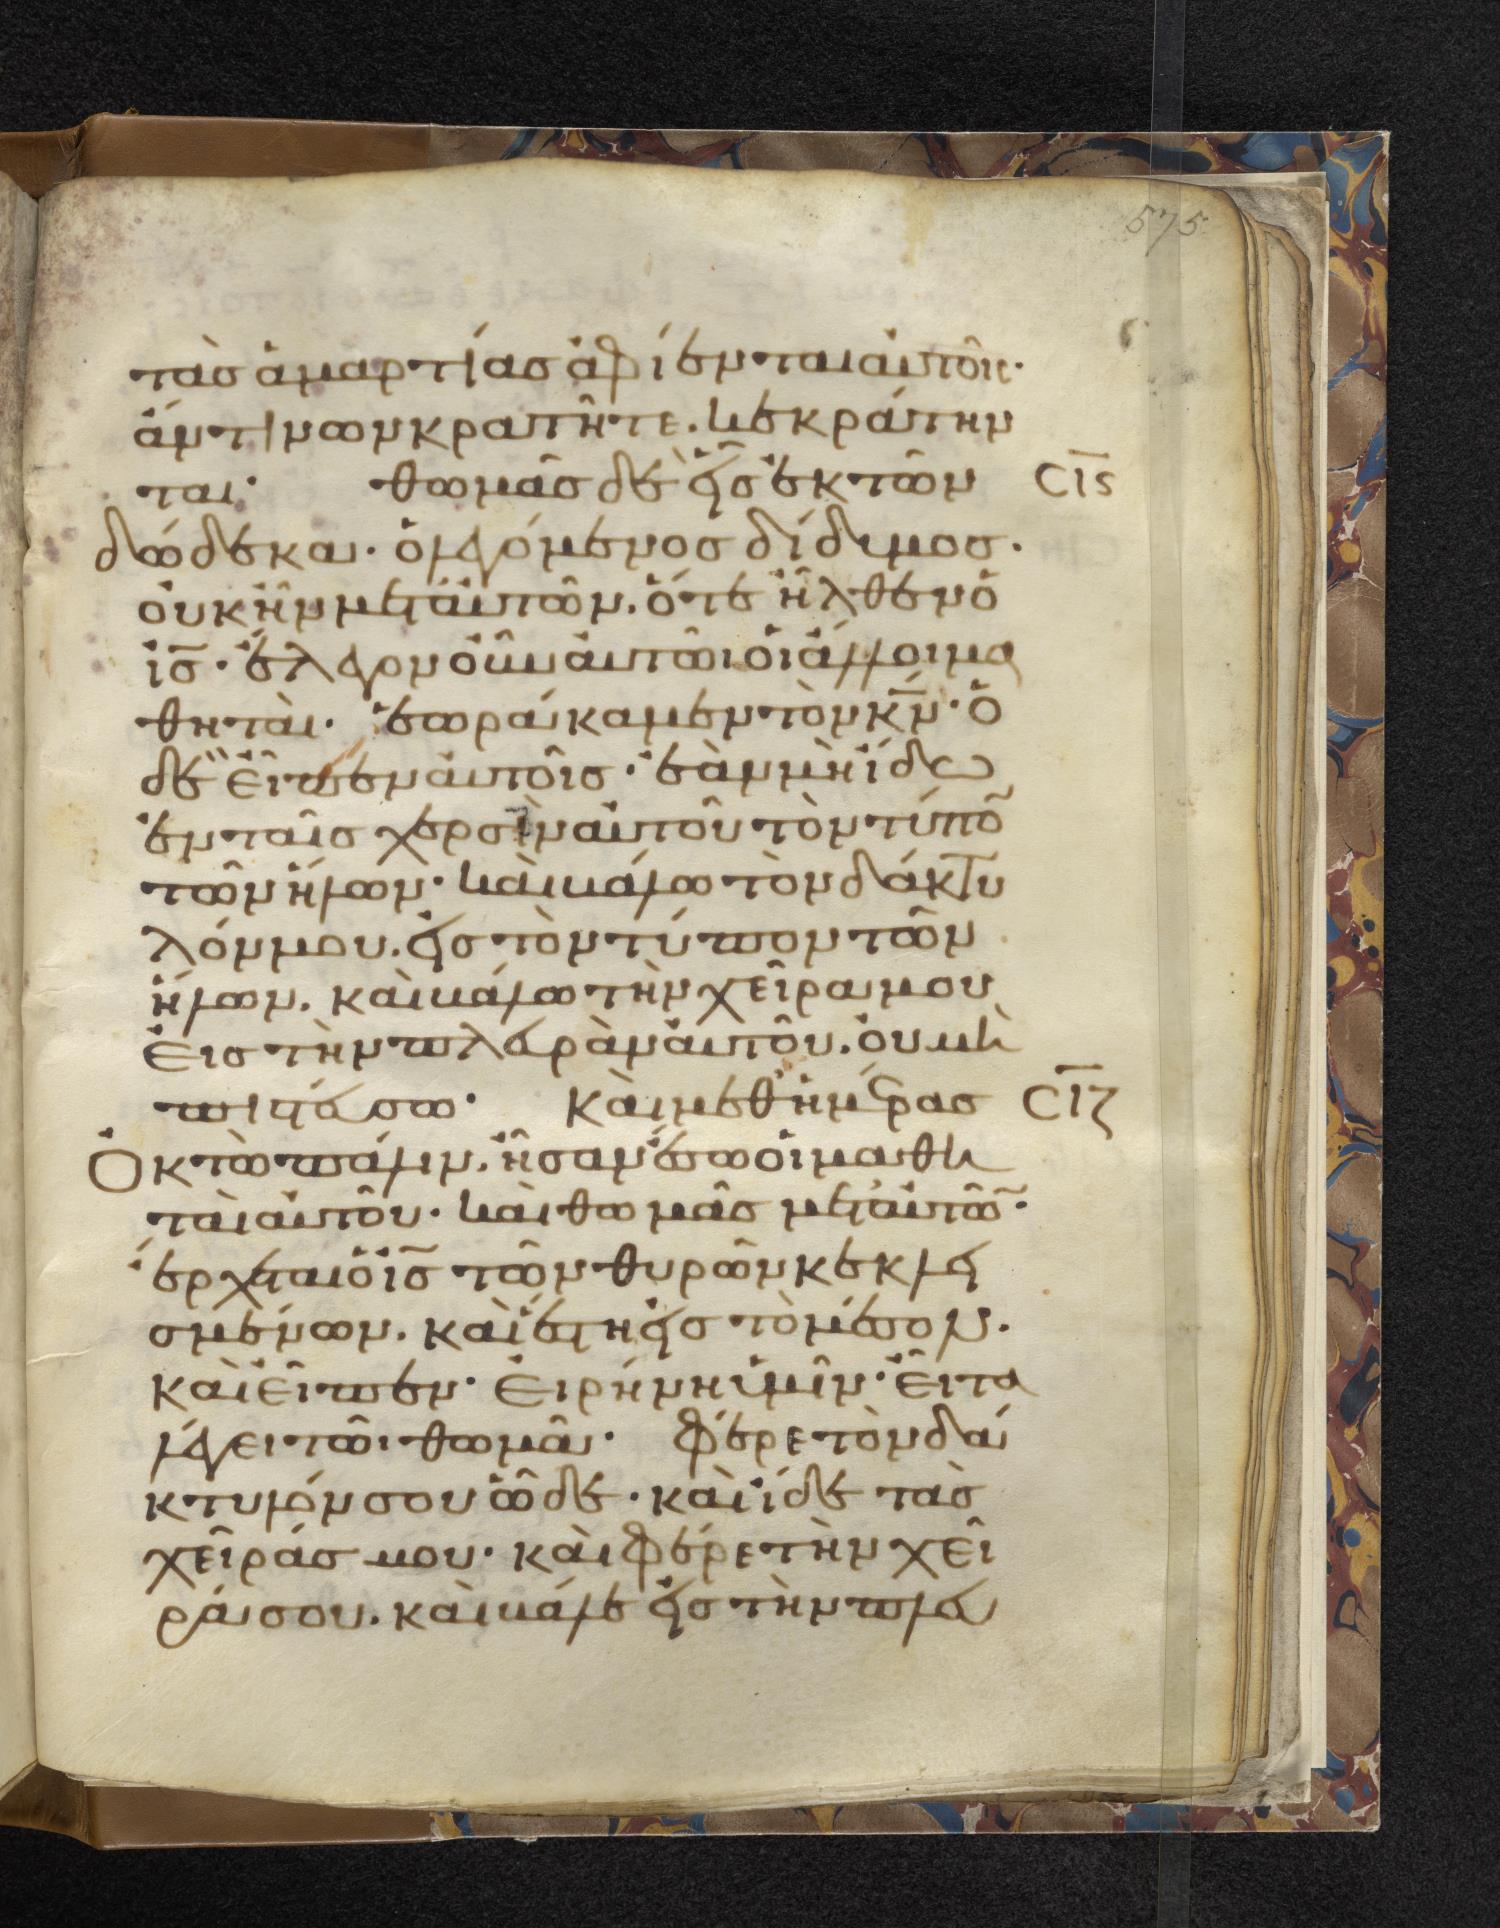 575
τὰσ ἁμαρτίασ ἀφίενται αὐτοῖς·
ἄν τινων κρατῆτε. κεκράτην
ται· θωμᾶσ δὲ εἷσ ἐκ τῶν σ̅ι̅ϛ
δώδεκα· ὁ λεγόμενοσ δίδυμοσ·
οὐκ ἦν μετ' αὐτῶν. ὅτε ἦλθεν ὁ
ι̅σ̅· ἔλεγον οὖν αὐτῶι οἱ ἄλλοι μα
θηταὶ· ἑωράκαμεν τὸν κ̅ν̅· ὁ
δὲ εἶπεν αὐτοῖσ· ἐὰν μὴ ἴδω
ἐν ταῖσ χερσὶν αὐτοῦ τὸν τύπο̅
τῶν ἥλων· καὶ βάλω τὸν δάκτυ
λόν μου. εἰσ τὸν τύπον τῶν
ἥλων. καὶ βάλω τὴν χεῖρα μου
εἰσ τὴν πλευρὰν αὐτοῦ. οὐ μὴ
πιστεύσω· καὶ μεθ' ἡμέρασ σ̅ι̅ζ
ὀκτὼ πάλιν. ἦσαν ἔσω οἱ μαθη
ταὶ αὐτοῦ· καὶ θωμᾶσ μετ' αὐτῶ̅·
ἔρχεται ὁ ι̅σ̅ τῶν θυρῶν κεκλει
σμένων. καὶ ἔστη εἰσ τὸ μέσον.
καὶ εἶπεν· εἰρήνη ὑμῖν· εἶτα
λέγει τῶι θωμᾶ· φέρε τὸν δά
κτυλόν σου ὧδε· καὶ ἴδε τὰσ
χεῖράσ μου· καὶ φέρε τὴν χεῖ
ρά σου. καὶ βάλε εἰσ τὴν πλευ